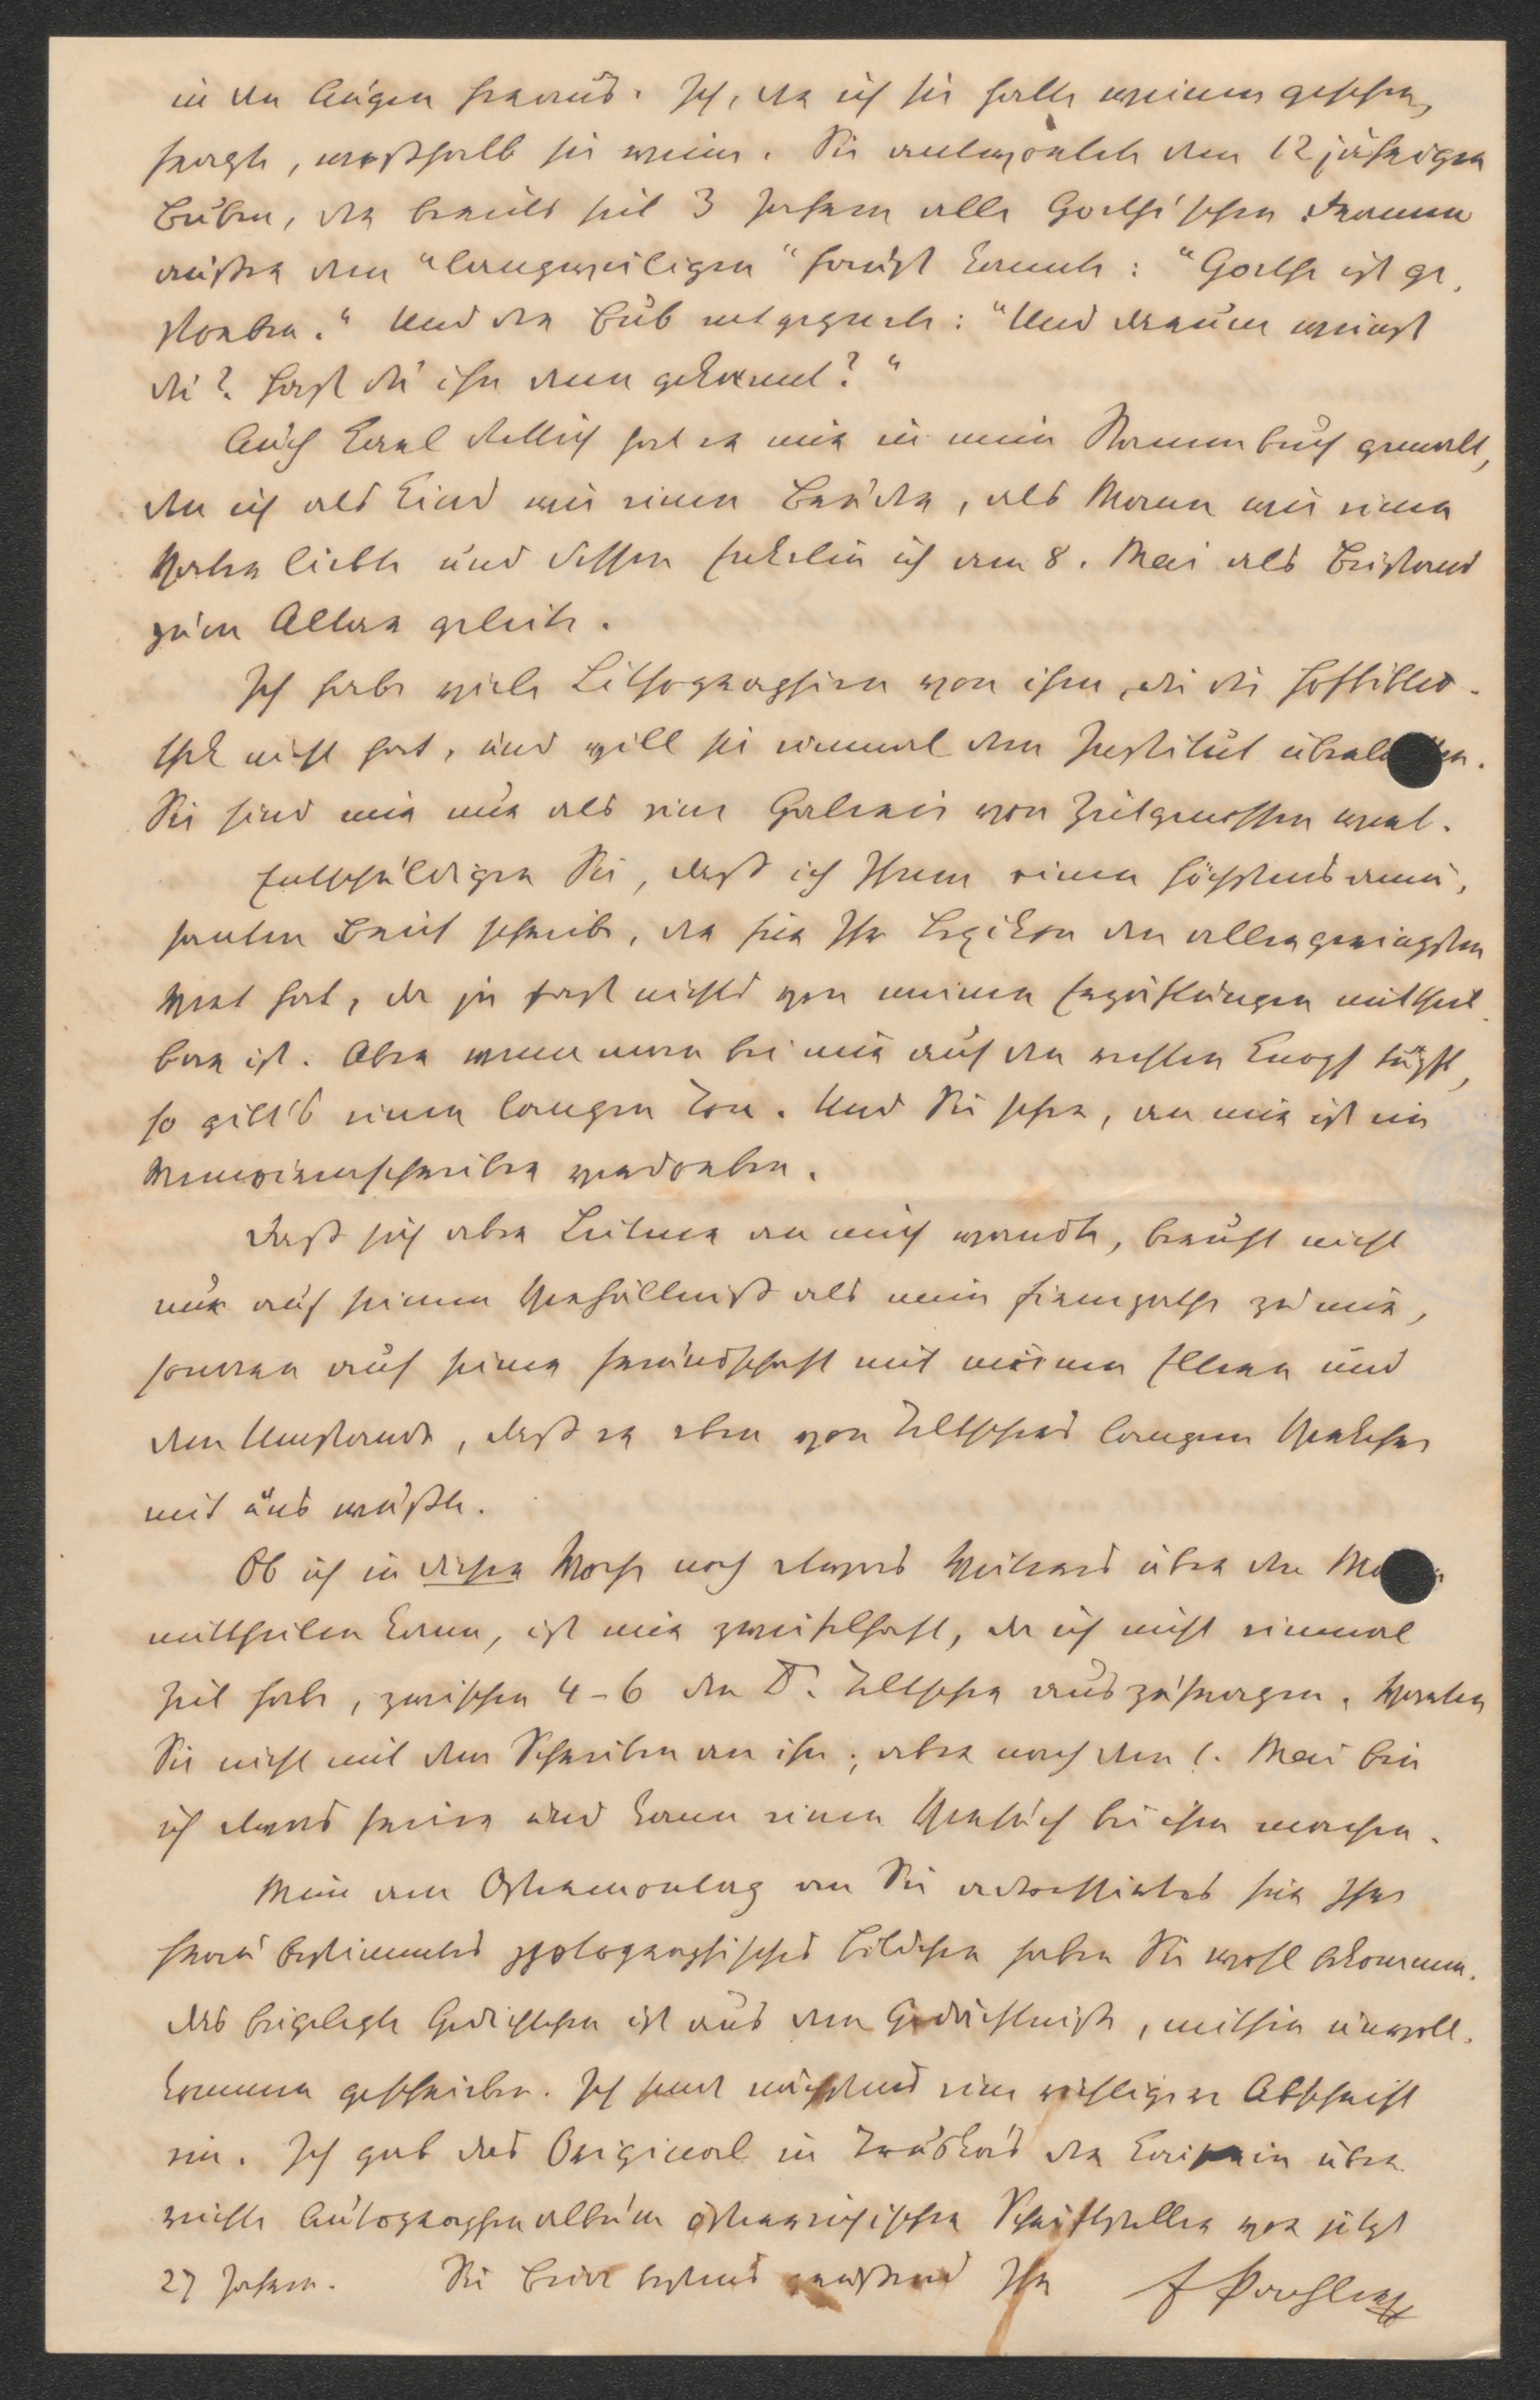 in den Augen heraus. Ich, der ich sie hatte weinen gesehen,
fragte, weßhalb sie weine. Sie antwortete dem 12 jährigen
Buben, der bereits seit 3 Jahren alle Goethe'schen Dramen
außer den "langweiligen" kannte: "Goethe ist ge-
storben." Und der Bub entgegnete: "Und darum weinst
du? Hast du ihn denn gekannt?"
Auch Carl Rettich hat er mir in mein Stammbuch gemalt,
den ich als Kind wie einen Bruder, als Mann wie einen
Vater liebte und dessen Enkelin ich am 8. Mai als Beistand
zum Altar geleite.
Ich habe viele Lithographien von ihm, die die Hofbiblio-
thek nicht hat, und will sie einmal dem Institut
Sie sind mir nur als eine Galerie von Zeitgenossen wert.
Entschuldigen Sie, daß ich Ihnen einen höchstens amü-
santen Brief schreibe, der für Ihr Lexikon den allergeringsten
Wert hat, da ja fast nichts von meinen Erzählungen mittheil-
bar ist. Aber wenn man bei mir auf den rechten Knopf tupft,
so gibt's einen langen Ton. Und Sie sehen, an mir ist ein
Memoirenschreiber verdorben.
Daß sich aber Leitner an mich wandte, beruht nicht
nur auf seinem Verhältniß als mein Firmpathe zu mir,
sondern auf seiner Freundschaft mit meinen Eltern und
dem Umstande, daß er eben von Teltschers langem Verkehre
mit uns wußte.
Ob ich in dieser Woche noch etwas Weiteres über den
mittheilen kann, ist mir zweifelhaft, da ich nicht einmal
Zeit habe, zwischen 4-6 den Dr. Teltscher auszufragen. Warten
Sie nicht mit dem Schreiben an ihn; aber nach dem 1. Mai bin
ich etwas freier und kann einen Versuch bei ihm machen.
Mein am Ostermontag an Sie adressirtes für Ihre
Frau bestimmtes photographisches Bildchen haben Sie wohl bekommen.
Das beigelegte Gedichtchen ist aus dem Gedächtnisse, mithin unvoll-
kommen geschrieben. Ich sende nächstens eine richtigere Abschrift
ein. Ich gab das Original in das der Kaiserin über-
reichte Autographenalbum österreichischer Schriftsteller vor jetzt
27 Jahren. Sie beide bestens grüßend Ihr